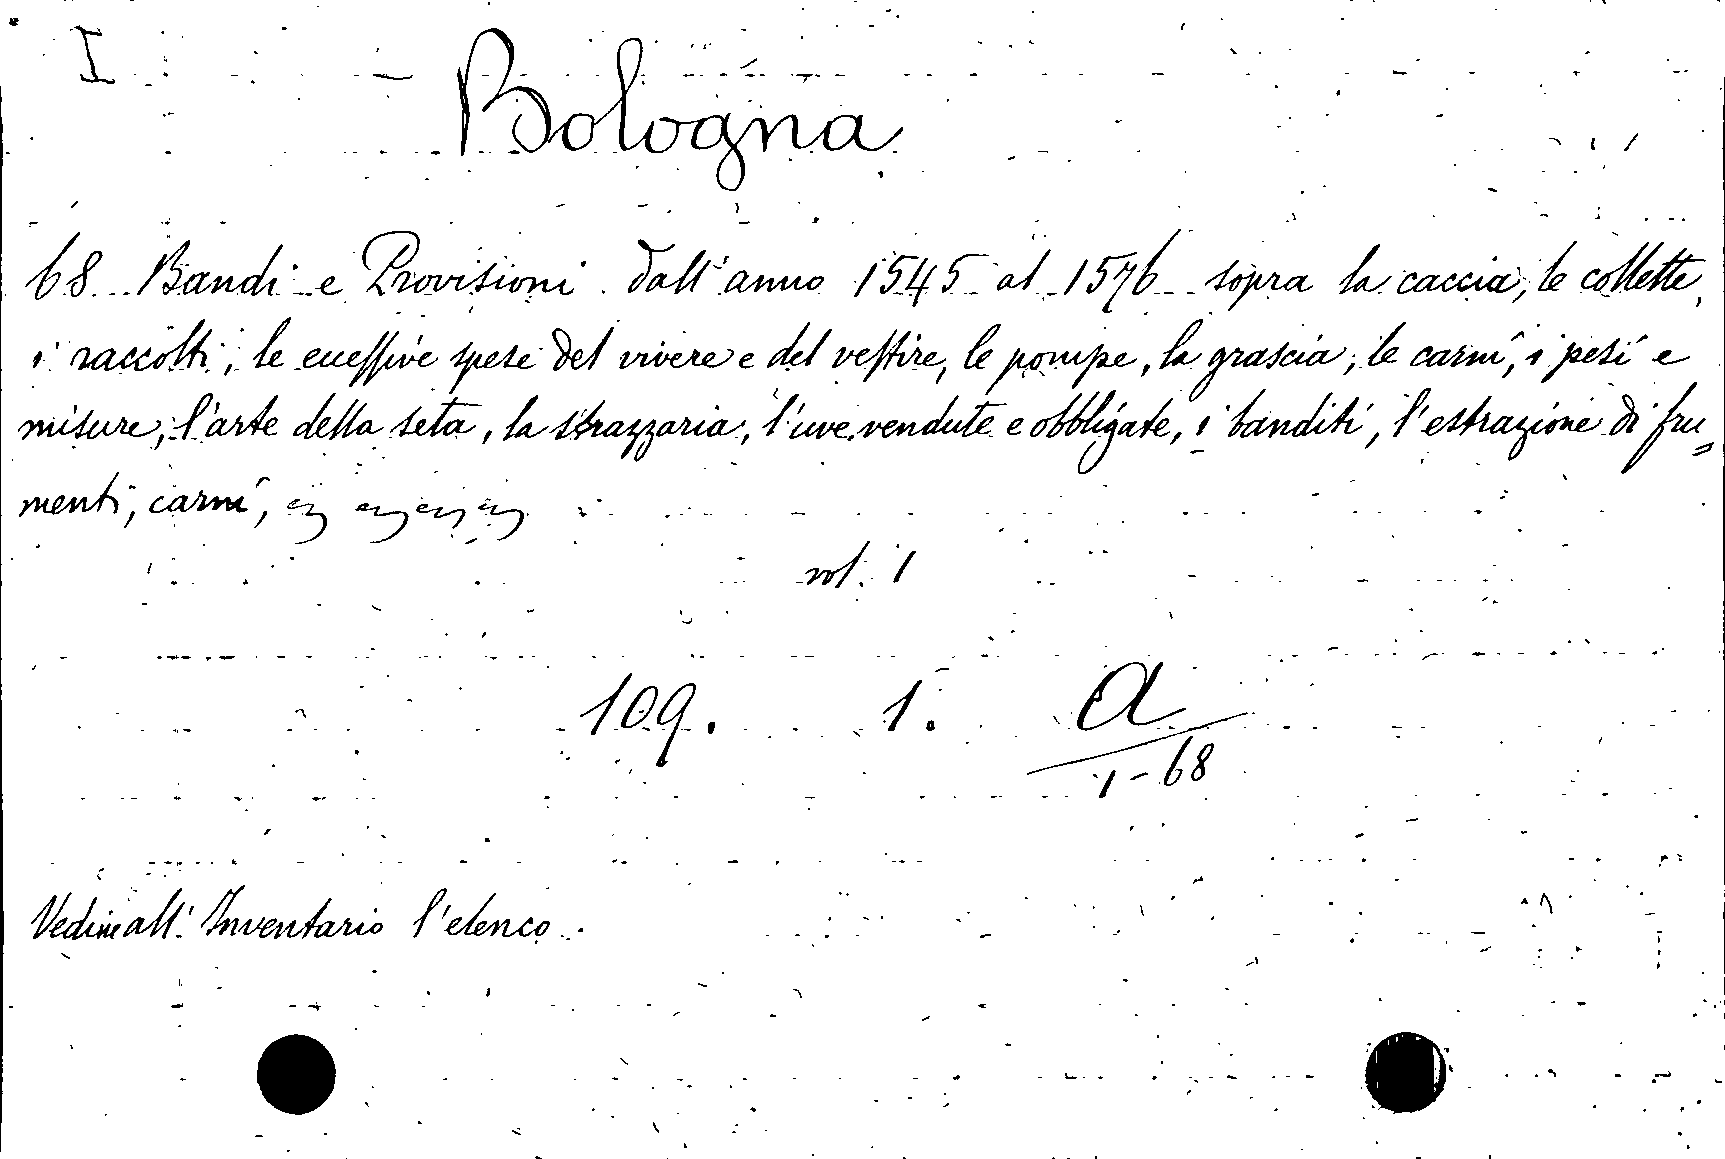 I
Bologna
68 Bandi e Provisioni dall'anno 1545 al 1576 sopra la caccia, le collette,
i raccolti, le eccessive spese del vivere e del vestire, le pompe, la grascia, le carni, i pesi e
misure, l'arte della seta, la strazzaria, l'uve vendute e obbligate, i banditi, l'estrazione di fru=
menti, carni,
vol. 1
109. 1. A
1-68
Vedine all'Inventario l'elenco.